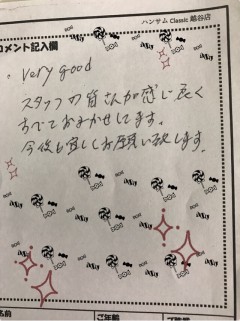 ハンサム Classic 越谷店
コメント記入欄
。very good
スタッフの皆さんが感じ良く
すべておまかせしてます。
今後も宜しくお願い致します。
名前
ご年齢
ご職業